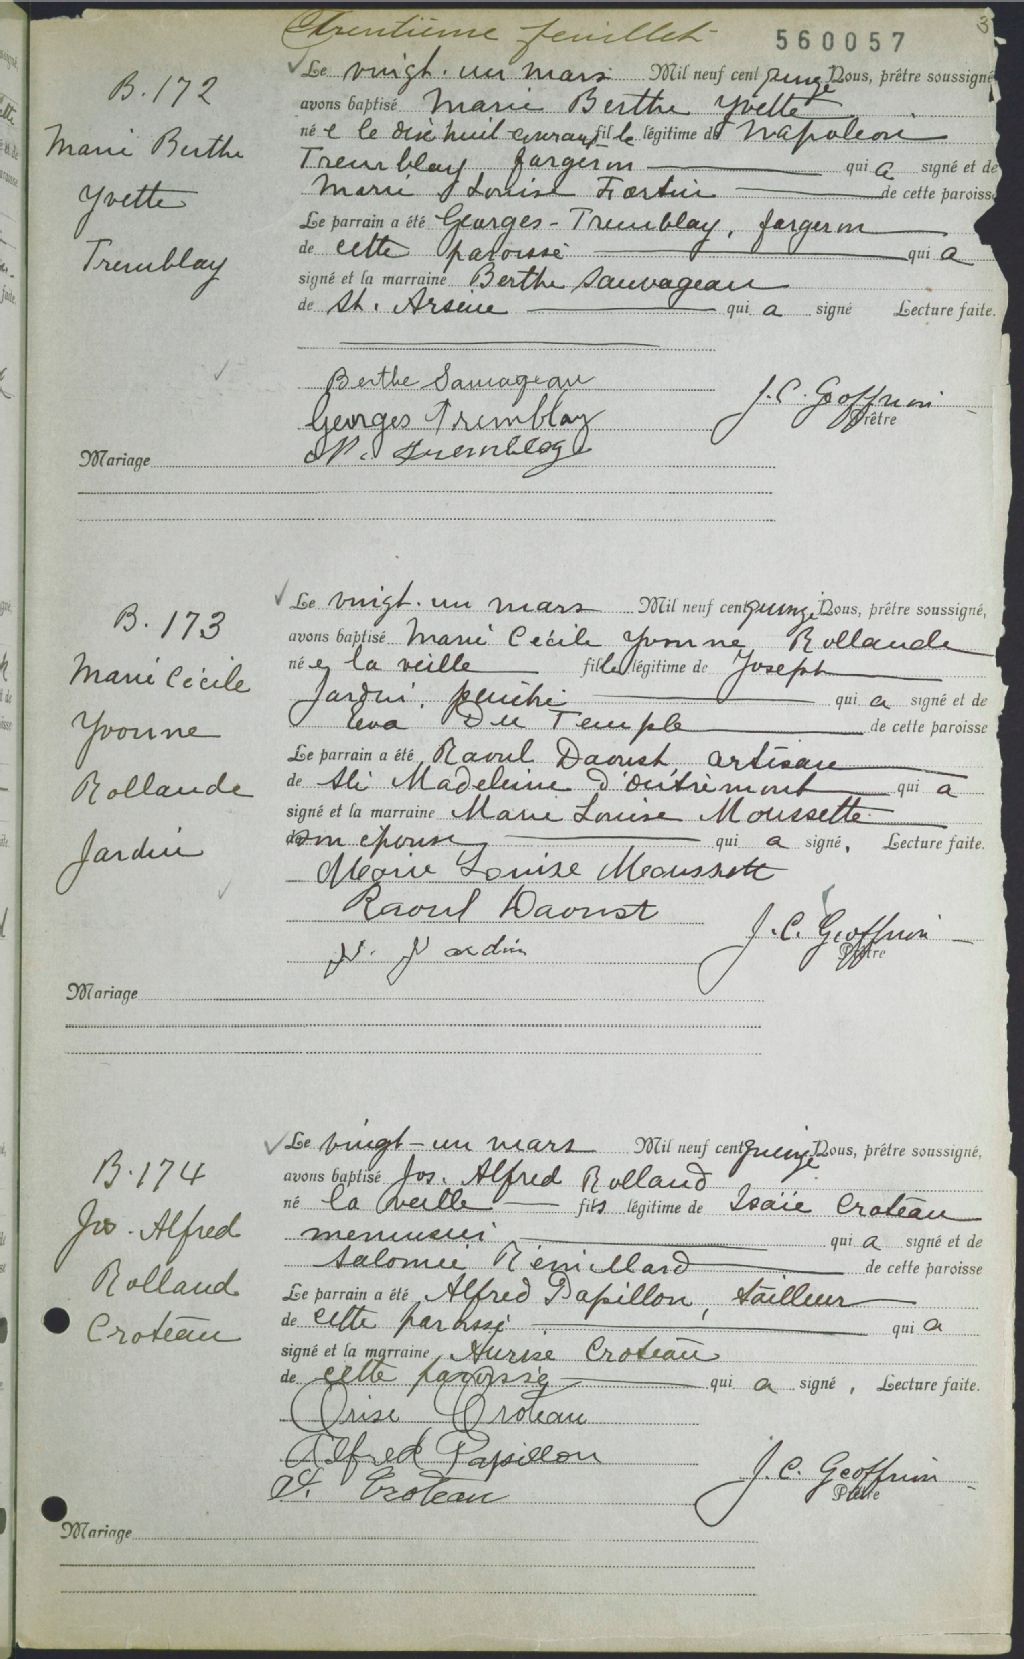 Trentième feuillet
560057
3
B. 172
Marie Berthe
Yvette
Tremblay
Le vingt-un mars Mil neuf cent quinze Nous, prêtre soussigné
avons baptisé Marie Berthe Yvette
né e le dix huit courant fille légitime de Napoléon
Tremblay forgeron qui a signé et de
Marie Louise Fortin de cette paroisse
Le parrain a été Georges - Tremblay, forgeron
de cette paroisse qui a
signé et la marraine Berthe Sauvageau
de St. Arsène qui a signé Lecture faite.
Berthe Sauvageau
Georges Tremblay
N. Tremblay
J. C. Geoffrion
Prêtre
Mariage
B. 173
Marie Cécile
Yvonne
Rollande
Jardin
Le vingt-un mars Mil neuf cent quinze Nous, prêtre soussigné,
avons baptisé Marie Cécile Yvonne Rollande
né e la veille fille légitime de Joseph
Jardin, peintre qui a signé et de
Eva Du Temple de cette paroisse
Le parrain a été Raoul Daoust, artisan
de Ste Madeleine d'Outremont qui a
signé et la marraine Marie Louise Moussette
son épouse qui a signé. Lecture faite.
Marie Louise Moussette
Raoul Daoust
J. Jardin
J. C. Geoffrion
Prêtre
Mariage
B. 174
Jos. Alfred
Rolland
Croteau
Le vingt-un mars Mil neuf cent quinze Nous, prêtre soussigné,
avons baptisé Jos. Alfred Rolland
né la veille fils légitime de Isaïe Croteau
menuisier qui a signé et de
Salomée Rémillard de cette paroisse
Le parrain a été Alfred Papillon, tailleur
de cette paroisse qui a
signé et la marraine Aurise Croteau
de cette paroisse qui a signé. Lecture faite.
Orise Croteau
Alfred Papillon
Croteau
J. C. Geoffrion
Prêtre
Mariage